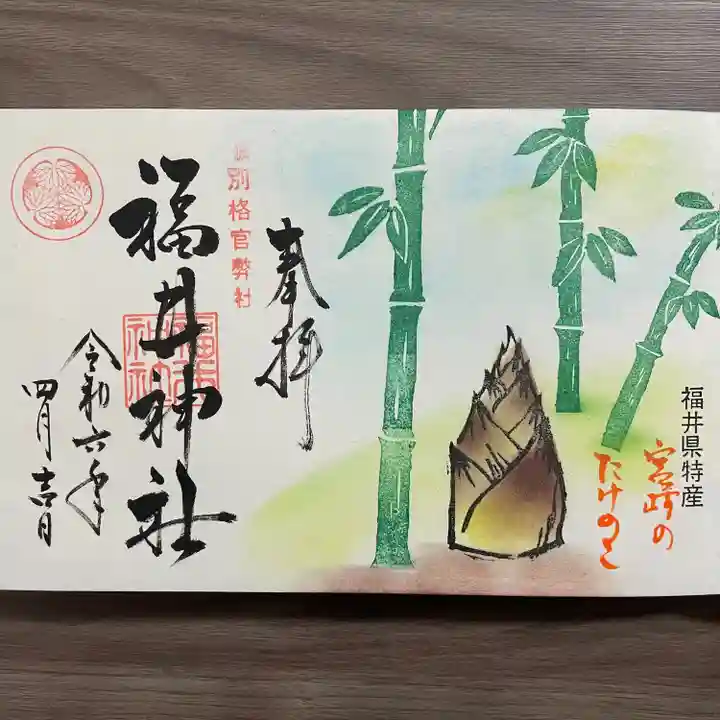 福井県特産
宮崎の
たけのこ
奉拝
旧別格官幣社
福井神社
福井
神社
令和六年
四月日